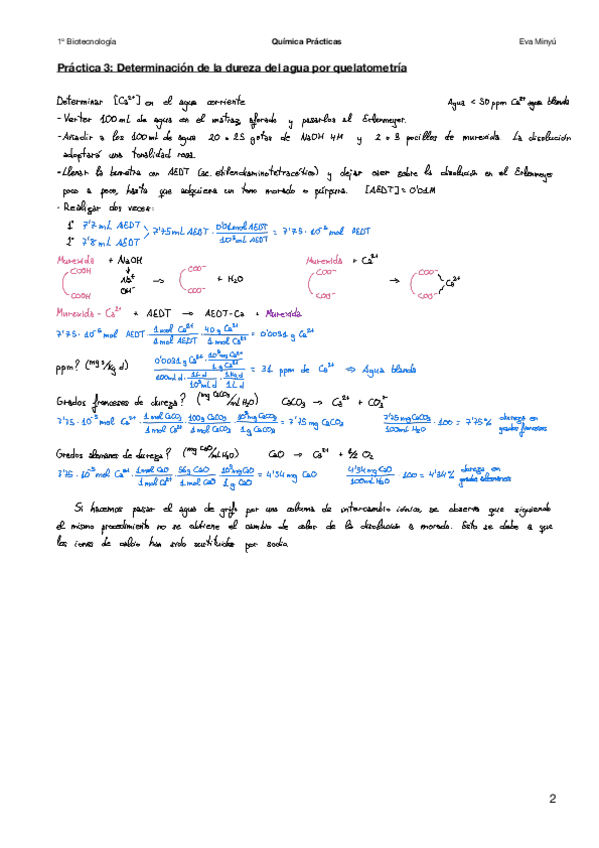 1º Biotecnología Química Prácticas Eva Minyú
Práctica 3: Determinación de la dureza del agua por quelatometría
Determinar [Ca²⁺] en el agua corriente Agua < 50 ppm Ca²⁺ agua blanda
- Verter 100 mL de agua en el matraz aforado y pasarlos al Erlenmeyer.
- Añadir a los 100 mL de agua 20 - 25 gotas de NaOH 4M y 2 - 3 pocillos de murexida. La disolución
adoptará una tonalidad rosa.
- Llenar la bureta con AEDT (ac. etilendiaminotetracético) y dejar caer sobre la disolución en el Erlenmeyer
poco a poco, hasta que adquiera un tono morado o púrpura. [AEDT] = 0'01M
- Realizar dos veces:
1ª 7'7 mL AEDT
2ª 7'8 mL AEDT
7'75 mL AEDT · 0'01 mol AEDT / 10³ mL AEDT = 7'75 · 10⁻⁵ mol AEDT
Murexida + NaOH Murexida + Ca²⁺
COOH Na⁺ COO⁻ COO⁻ COO⁻
+ H₂O → Ca²⁺
COOH OH⁻ COO⁻ COO⁻ COO⁻
Murexida - Ca²⁺ + AEDT → AEDT-Ca + Murexida
7'75 · 10⁻⁵ mol AEDT · 1 mol Ca²⁺ / 1 mol AEDT · 40 g Ca²⁺ / 1 mol Ca²⁺ = 0'0031 g Ca²⁺
ppm? (mg s/kg d) 0'0031 g Ca²⁺ · 10³ mg Ca²⁺ / 1 g Ca²⁺
100 mL d · 1 L d / 10³ mL d · 1 kg d / 1 L d = 31 ppm de Ca²⁺ ⇒ Agua blanda
Grados franceses de dureza? (mg CaCO₃/mL H₂O) CaCO₃ → Ca²⁺ + CO₃²⁻
7'75 · 10⁻⁵ mol Ca²⁺ · 1 mol CaCO₃ / 1 mol Ca²⁺ · 100 g CaCO₃ / 1 mol CaCO₃ · 10³ mg CaCO₃ / 1 g CaCO₃ = 7'75 mg CaCO₃ 7'75 mg CaCO₃ / 100 mL H₂O · 100 = 7'75% dureza en grados franceses
Grados alemanes de dureza? (mg CaO/mL H₂O) CaO → Ca²⁺ + ½ O₂
7'75 · 10⁻⁵ mol Ca²⁺ · 1 mol CaO / 1 mol Ca²⁺ · 56 g CaO / 1 mol CaO · 10³ mg CaO / 1 g CaO = 4'34 mg CaO 4'34 mg CaO / 100 mL H₂O · 100 = 4'34% dureza en grados alemanes
Si hacemos pasar el agua de grifo por una columna de intercambio iónico, se observa que siguiendo
el mismo procedimiento no se obtiene el cambio de color de la disolución a morado. Esto se debe a que
los iones de calcio han sido sustituidos por sodio.
2